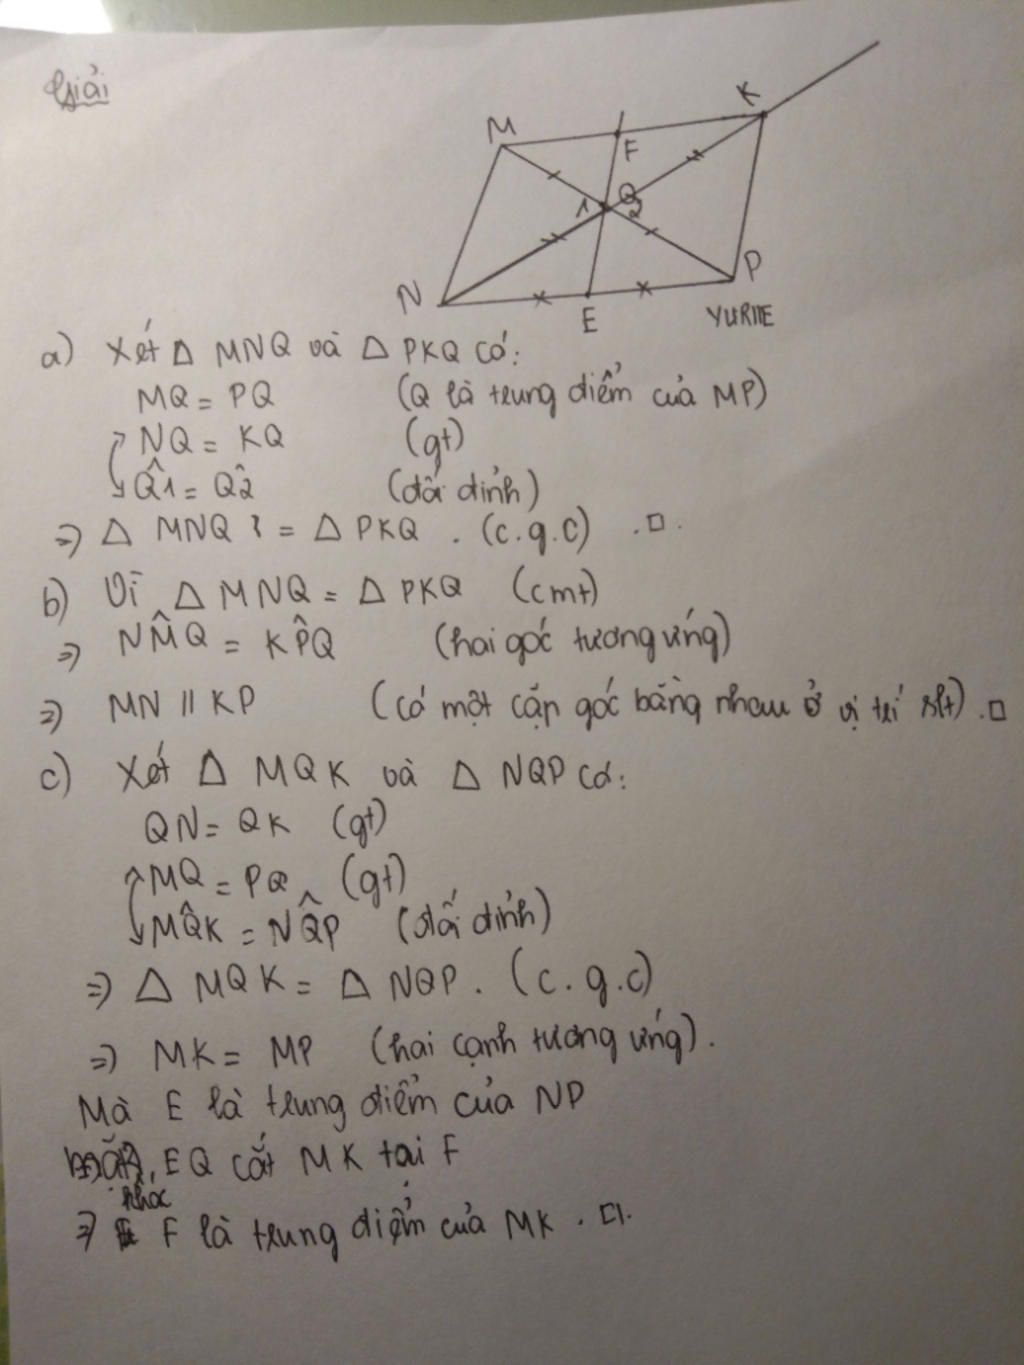 Giải
M
K
F
Q
1
2
N
E
P
YURIIE
a) Xét △ MNQ và △ PKQ có:
MQ = PQ (Q là trung điểm của MP)
NQ = KQ (gt)
Q̂1 = Q̂2 (đối đỉnh)
=> △ MNQ = △ PKQ . (c.g.c) . □ .
b) Vì △ MNQ = △ PKQ (cmt)
=> NM̂Q = KP̂Q (hai góc tương ứng)
=> MN // KP (có một cặp góc bằng nhau ở vị trí slt) . □
c) Xét △ MQK và △ NQP có:
QN = QK (gt)
MQ = PQ (gt)
MQ̂K = NQ̂P (đối đỉnh)
=> △ MQK = △ NQP . (c.g.c)
=> MK = MP (hai cạnh tương ứng).
Mà E là trung điểm của NP
mặt khác, EQ cắt MK tại F
=> F là trung điểm của MK . □.